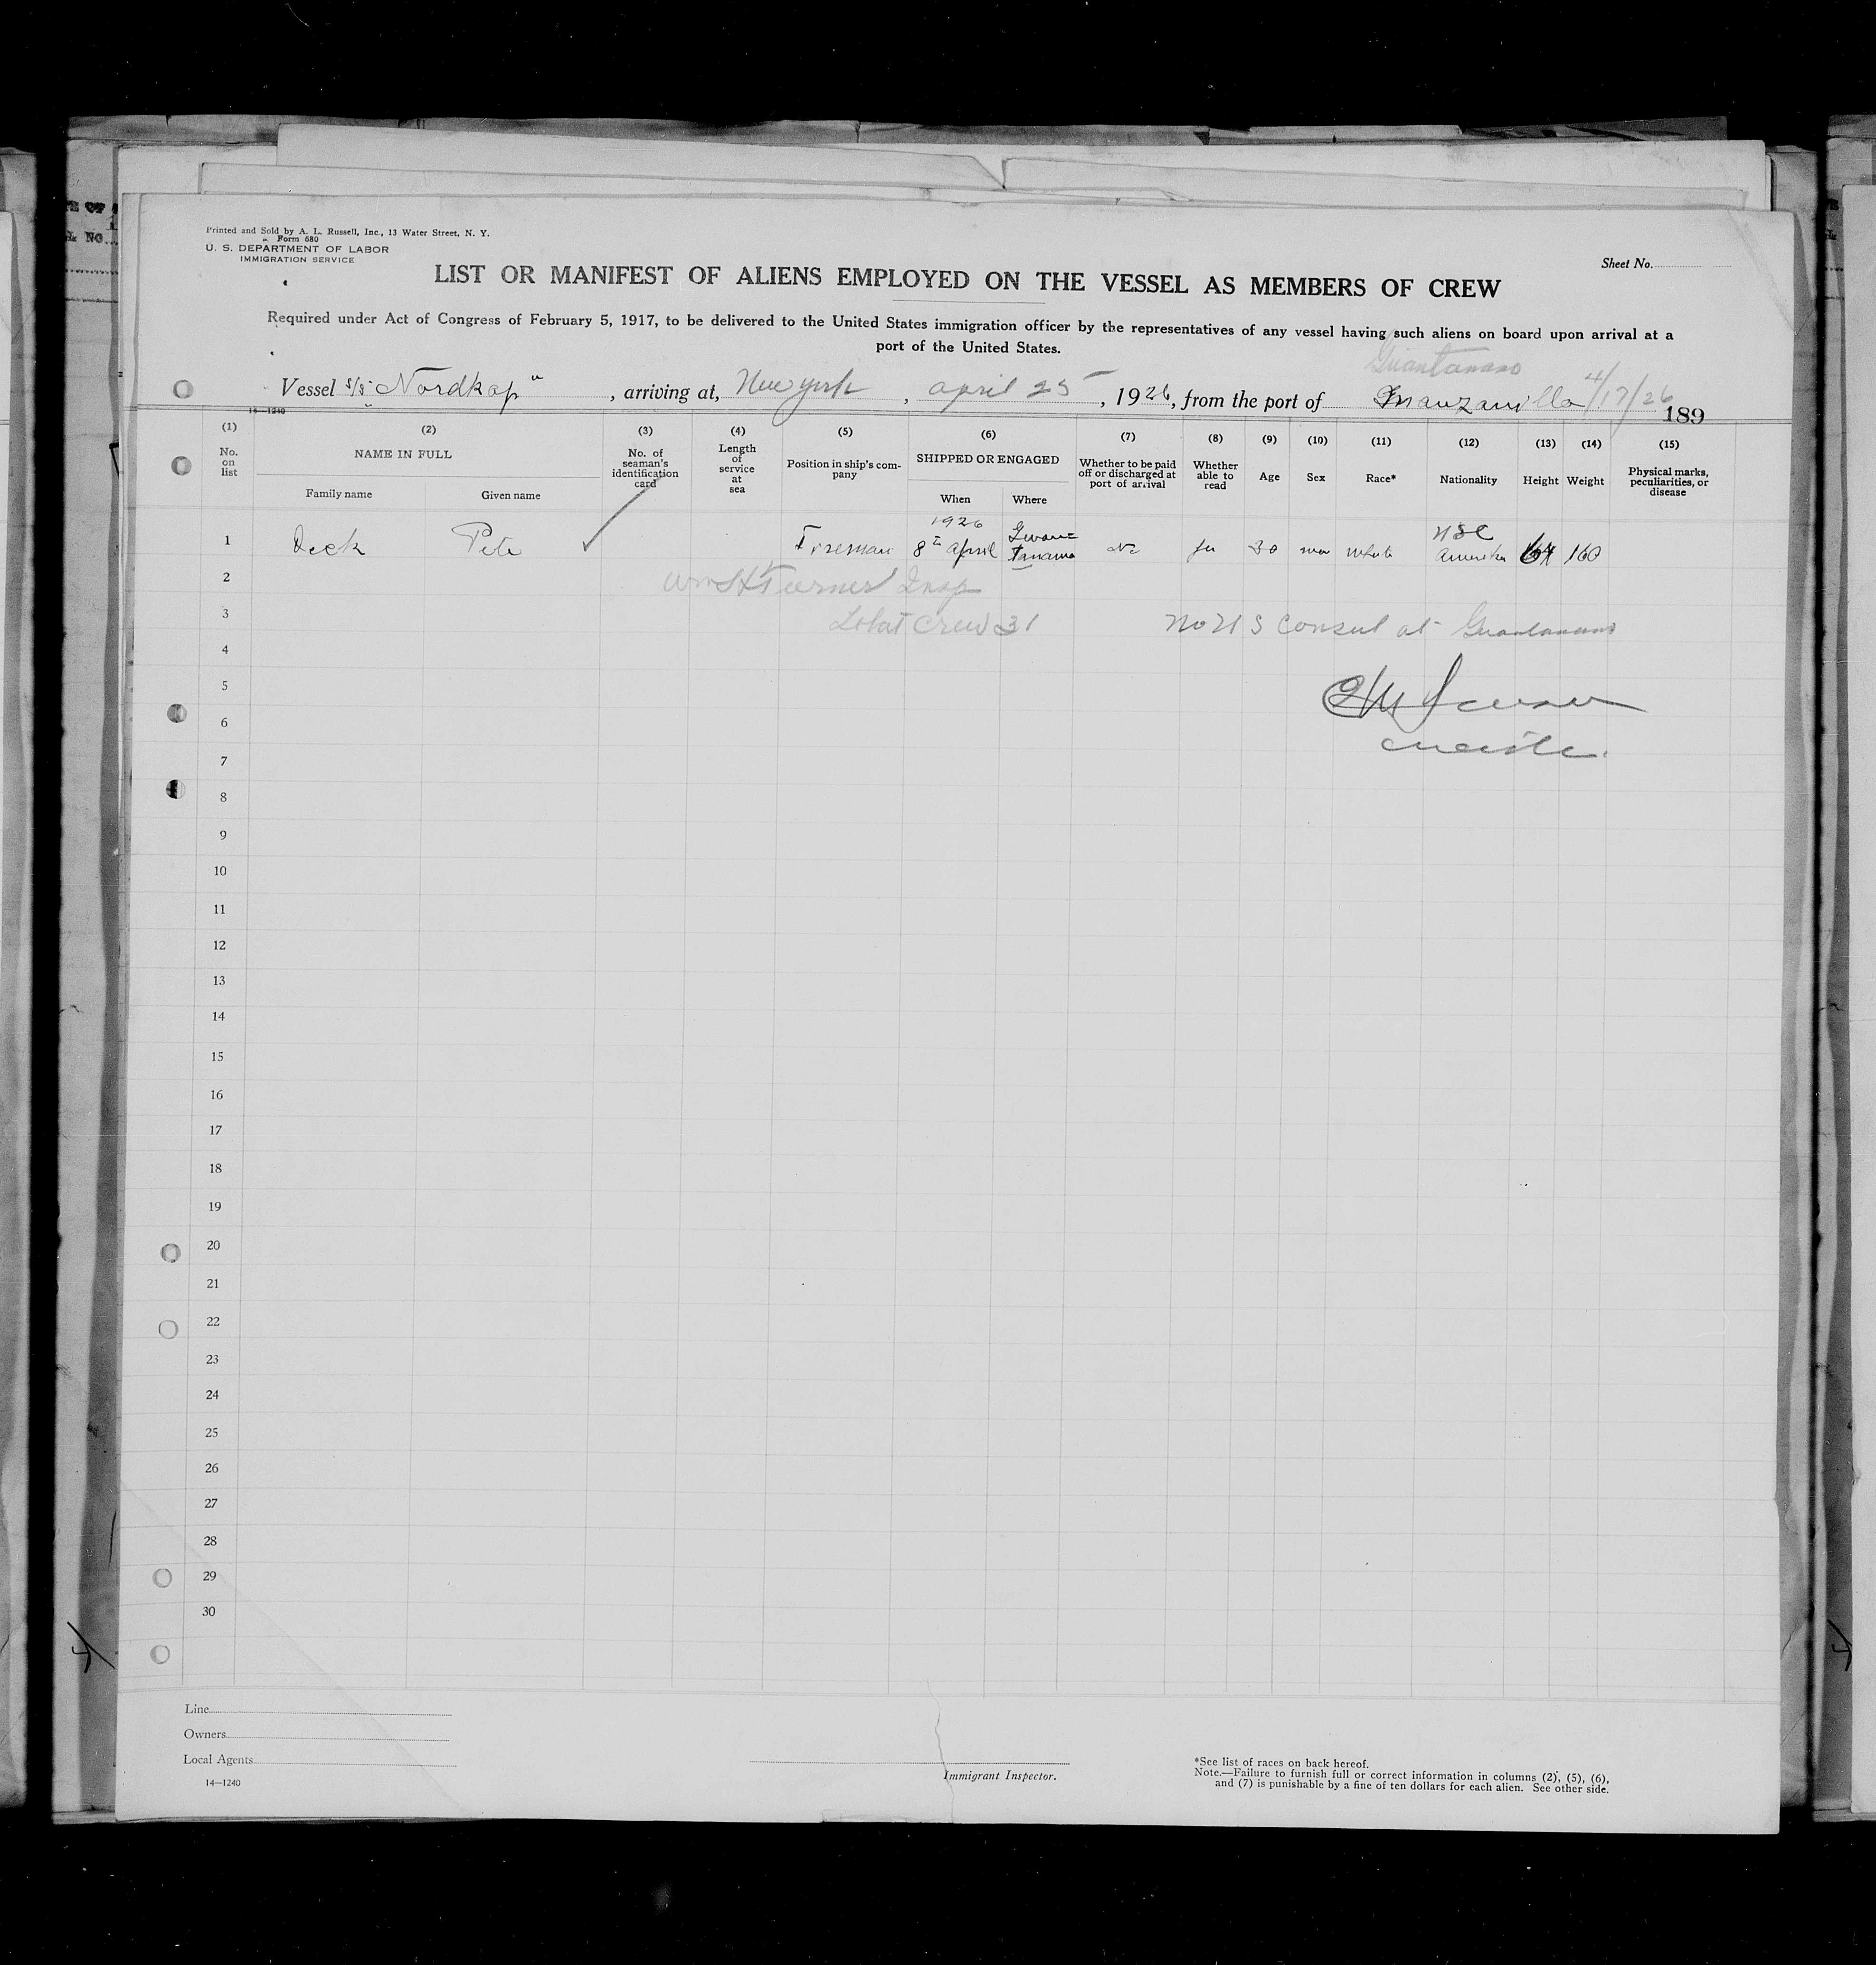 TE OF
NO
Printed and Sold by A. L. Russell, Inc., 13 Water Street, N. Y.
Form 680
U. S. DEPARTMENT OF LABOR
IMMIGRATION SERVICE
Sheet No.
LIST OR MANIFEST OF ALIENS EMPLOYED ON THE VESSEL AS MEMBERS OF CREW
Required under Act of Congress of February 5, 1917, to be delivered to the United States immigration officer by the representatives of any vessel having such aliens on board upon arrival at a
port of the United States.
Guantanamo
Vessel s/s "Nordkap", arriving at, New york, april 25, 1926, from the port of Manzanilla 4/17/26
14—1240
189
(1) (2) (3) (4) (5) (6) (7) (8) (9) (10) (11) (12) (13) (14) (15)
No. on list
NAME IN FULL
Family name Given name
No. of seaman's identification card
Length of service at sea
Position in ship's company
SHIPPED OR ENGAGED
When Where
Whether to be paid off or discharged at port of arrival
Whether able to read
Age
Sex
Race*
Nationality
Height
Weight
Physical marks, peculiarities, or disease
1926 USC
1 Deck Pete Fireman 8 april No 30 160
2 Wm H Turner Insp
3 Total Crew 31 No U S Consul at Guantanamo
4
5
6
7
8
9
10
11
12
13
14
15
16
17
18
19
20
21
22
23
24
25
26
27
28
29
30
Line
Owners
Local Agents
14—1240
Immigrant Inspector.
*See list of races on back hereof.
Note.—Failure to furnish full or correct information in columns (2), (5), (6),
and (7) is punishable by a fine of ten dollars for each alien. See other side.